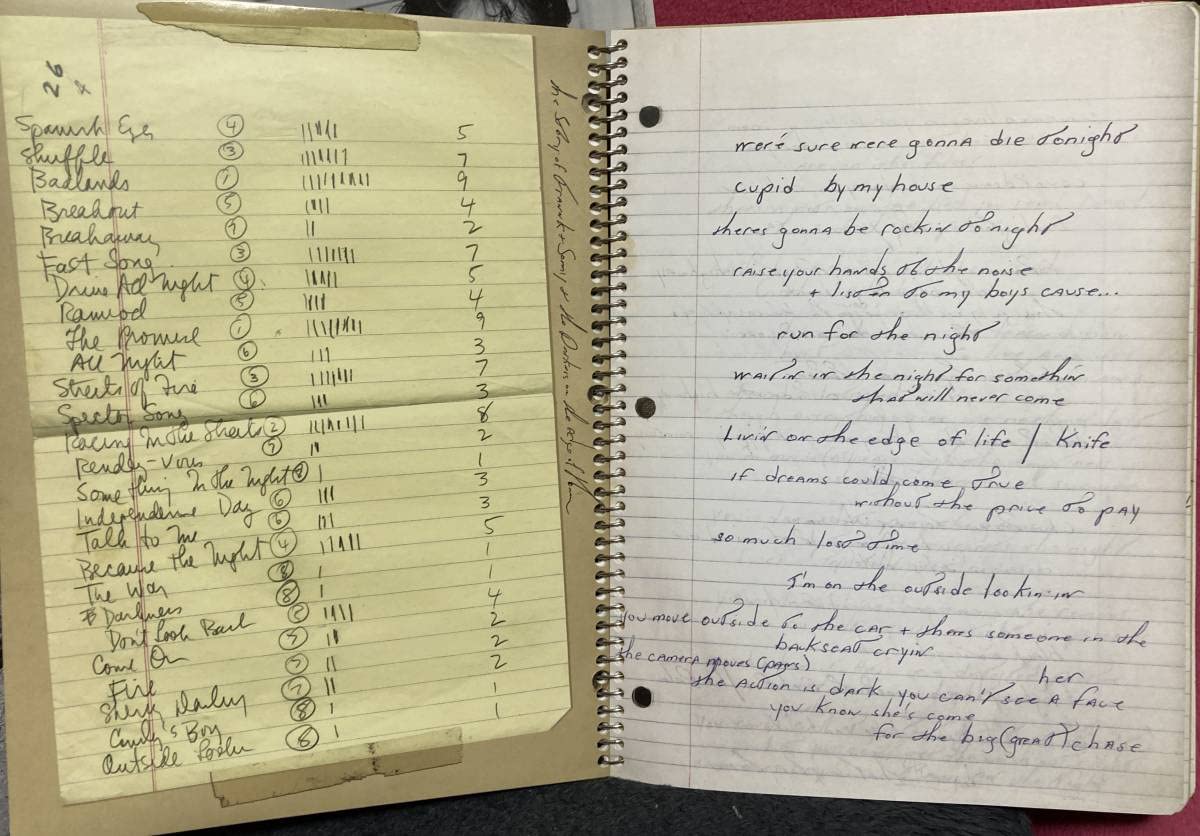 26
Spanish Eyes ④ ||||| 5
Shuffle ③ ||||||| 7
Badlands ① ||||||||| 9
Breakout ⑤ |||| 4
Breakaway ⑦ || 2
Fast Song ③ ||||||| 7
Drive All Night ④ ||||| 5
Ramrod ⑤ |||| 4
The Promise ① ||||||||| 9
All Night ⑥ ||| 3
Streets of Fire ③ ||||||| 7
Spector Song ⑥ ||| 3
Racing In the Streets ② |||||||| 8
Rendez-vous ⑦ || 2
Something In the Night ⑧ | 1
Independence Day ⑥ ||| 3
Talk to Me ⑥ ||| 3
Because the Night ④ ||||| 5
The Way ⑧ | 1
Darkness ⑧ | 1
Don't Look Back ⑤ |||| 4
Come On ⑦ || 2
Fire ⑦ || 2
Sherry Darling ⑦ || 2
Candy's Boy ⑧ | 1
Outside Lookin ⑧ | 1
the Story of + + the Darkness on the edge of town
we're sure were gonna die tonight
cupid by my house
theres gonna be rockin tonight
raise your hands to the noise
+ listen to my boys cause...
run for the night
waitin in the night for somethin
that will never come
Livin on the edge of life / Knife
if dreams could come true
without the price to pay
so much lost time
I'm on the outside lookin in
you move outside to the car + theres someone in the
backseat cryin
the camera moves (pans)
her
the action is dark you can't see a face
you know she's come
for the big (great) chase